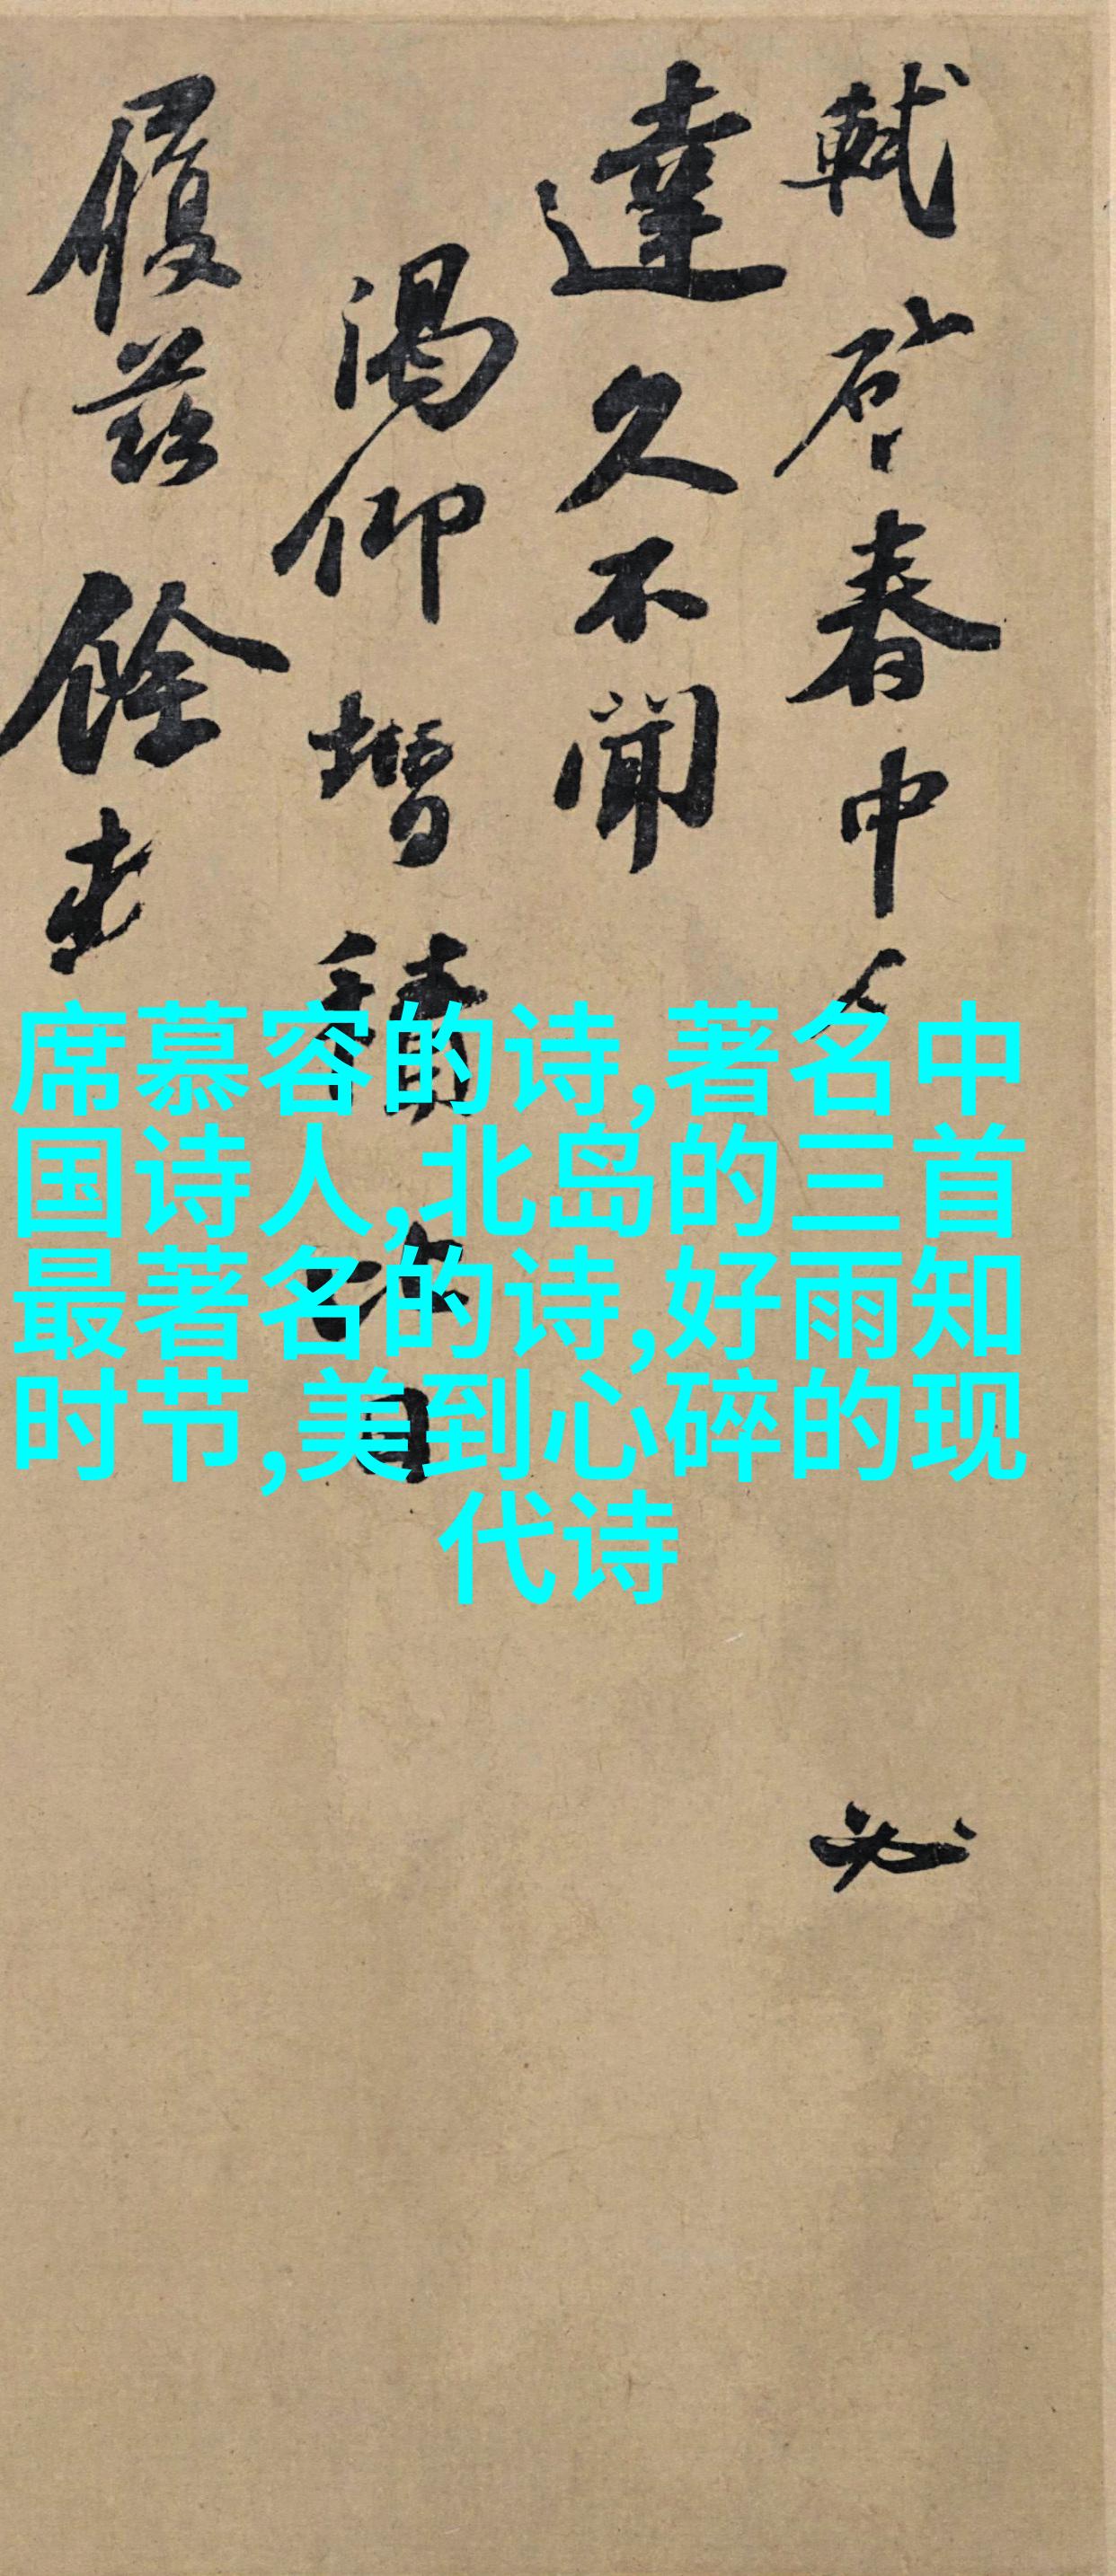 軾啓春中
必
達久不聞
渴仰增積
日
履茲餘
席慕容的诗,著名中
国诗人,北岛的三首
最著名的诗,好雨知
时节,美到心碎的现
代诗